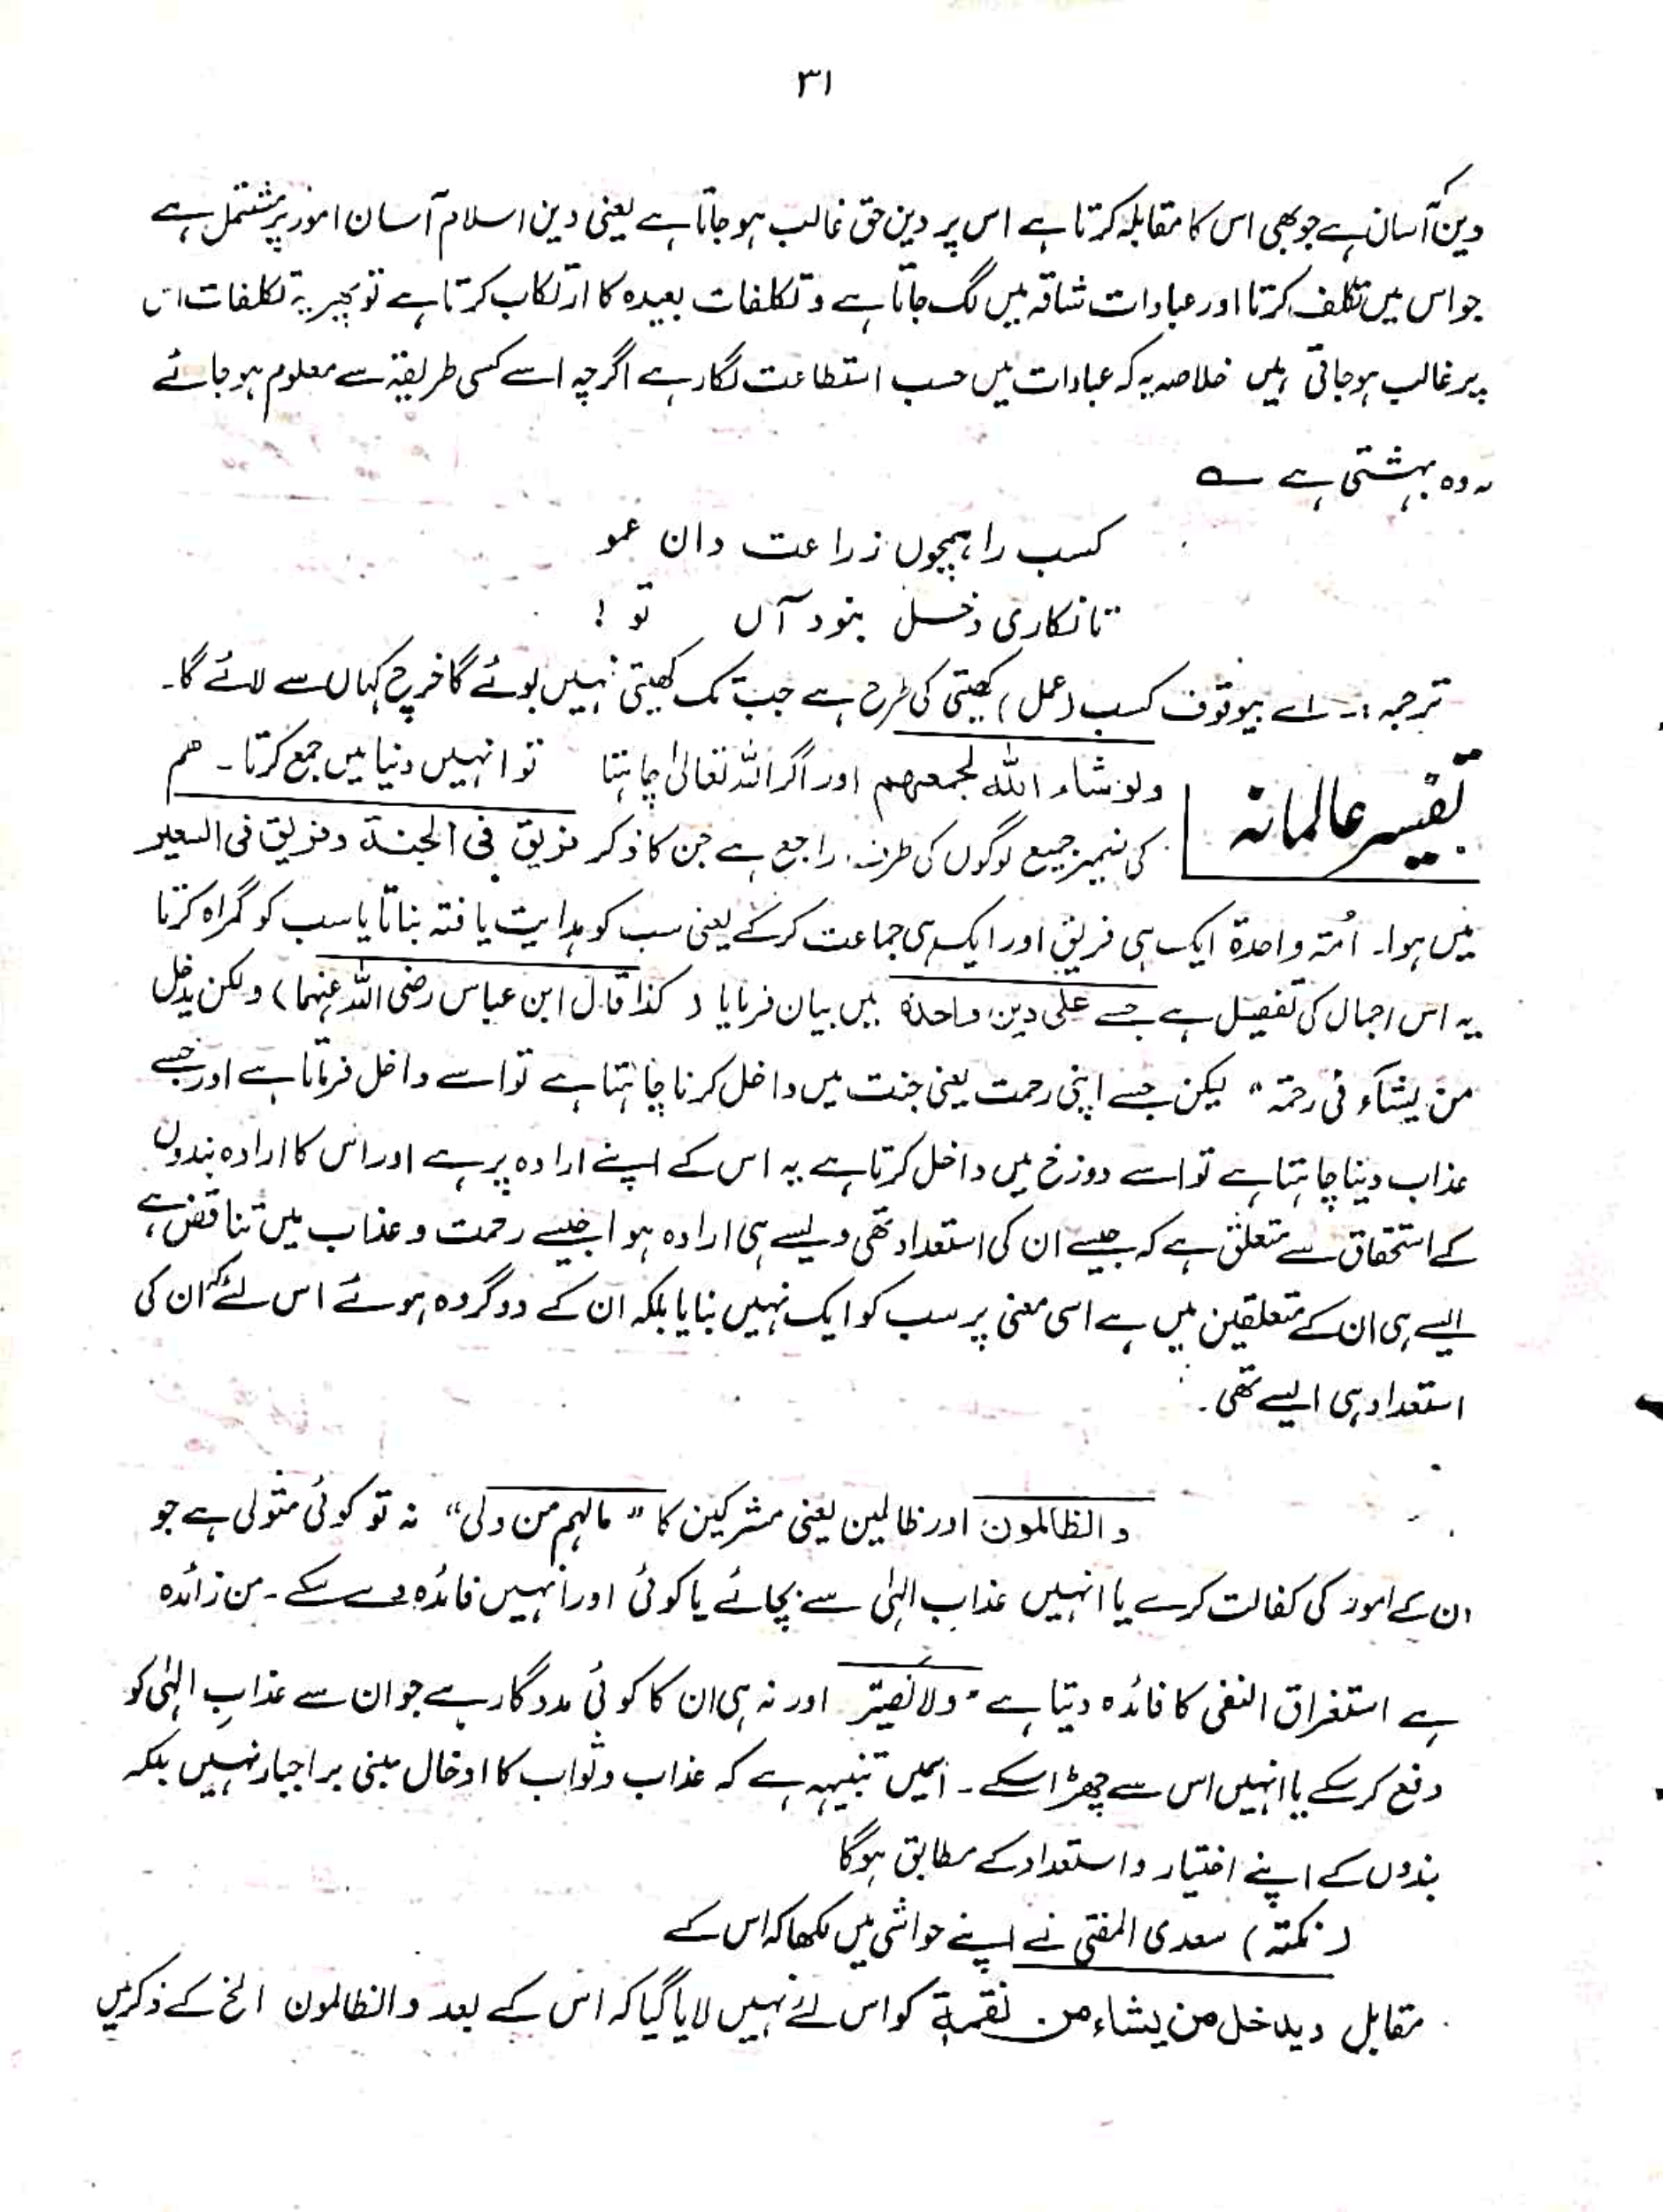 ۳۱
دین آسان ہے جو بھی اس کا مقابلہ کرتا ہے اس پر دین حق غالب ہو جاتا ہے یعنی دین اسلام آسان امور پر مشتمل ہے
جو اس میں تکلف کرتا اور عبادات شاقہ میں لگ جاتا ہے و تکلفات بعیدہ کا ارتکاب کرتا ہے تو پھر یہ تکلفات اس
پر غالب ہو جاتی ہیں خلاصہ یہ کہ عبادات میں حسب استطاعت لگا رہے اگرچہ اسے کسی طریقہ سے معلوم ہو جائے
کہ وہ بہشتی ہے ؎
کسب را ہمچوں زراعت دان عمو
تا نکاری دخل نبود آں تو !
ترجمہ :۔ اے بیوقوف کسب (عمل) کھیتی کی طرح ہے جب تک کھیتی نہیں بوئے گا خرچ کہاں سے لائے گا۔
تفسیر عالمانہ
ولو شاء اللہ لجمعھم اور اگر اللہ تعالیٰ چاہتا تو انہیں دنیا میں جمع کرتا۔ ھم
کی ضمیر جمیع لوگوں کی طرف راجع ہے جن کا ذکر فریق فی الجنۃ و فریق فی السعیر
میں ہوا۔ اُمۃ واحدۃ ایک ہی فریق اور ایک ہی جماعت کرکے یعنی سب کو ہدایت یافتہ بناتا یا سب کو گمراہ کرتا
یہ اس اجمال کی تفصیل ہے جسے علی دین واحدۃ میں بیان فرمایا ( کذا قال ابن عباس رضی اللہ عنہما) ولکن یدخل
من یشآء فی رحمتہ" لیکن جسے اپنی رحمت یعنی جنت میں داخل کرنا چاہتا ہے تو اسے داخل فرماتا ہے اور جسے
عذاب دینا چاہتا ہے تو اسے دوزخ میں داخل کرتا ہے یہ اس کے اپنے ارادہ پر ہے اور اس کا ارادہ بندوں
کے استحقاق سے متعلق ہے کہ جیسے ان کی استعداد تھی ویسے ہی ارادہ ہوا جیسے رحمت و عذاب میں تناقض ہے
ایسے ہی ان کے متعلقین میں ہے اسی معنی پر سب کو ایک نہیں بنایا بلکہ ان کے دو گروہ ہوئے اس لئے کہ ان کی
استعداد ہی ایسے تھی۔
والظالمون اور ظالمین یعنی مشرکین کا " مالہم من ولی" نہ تو کوئی متولی ہے جو
ان کے امور کی کفالت کرے یا انہیں عذاب الہٰی سے بچائے یا کوئی اور انہیں فائدہ دے سکے۔ من زائدہ
ہے استغراق النفی کا فائدہ دیتا ہے " ولا نصیر اور نہ ہی ان کا کوئی مددگار ہے جو ان سے عذابِ الہٰی کو
دفع کر سکے یا انہیں اس سے چھڑا سکے۔ اسمیں تنبیہہ ہے کہ عذاب و ثواب کا ادخال مبنی بر اجبار نہیں بلکہ
بندوں کے اپنے اختیار و استعداد کے مطابق ہوگا
( نکتہ ) سعدی المفتی نے اپنے حواشی میں لکھا کہ اس کے
مقابل ویدخل من یشاء من نقمۃ کو اس لئے نہیں لایا گیا کہ اس کے بعد والظالمون الخ کے ذکر میں